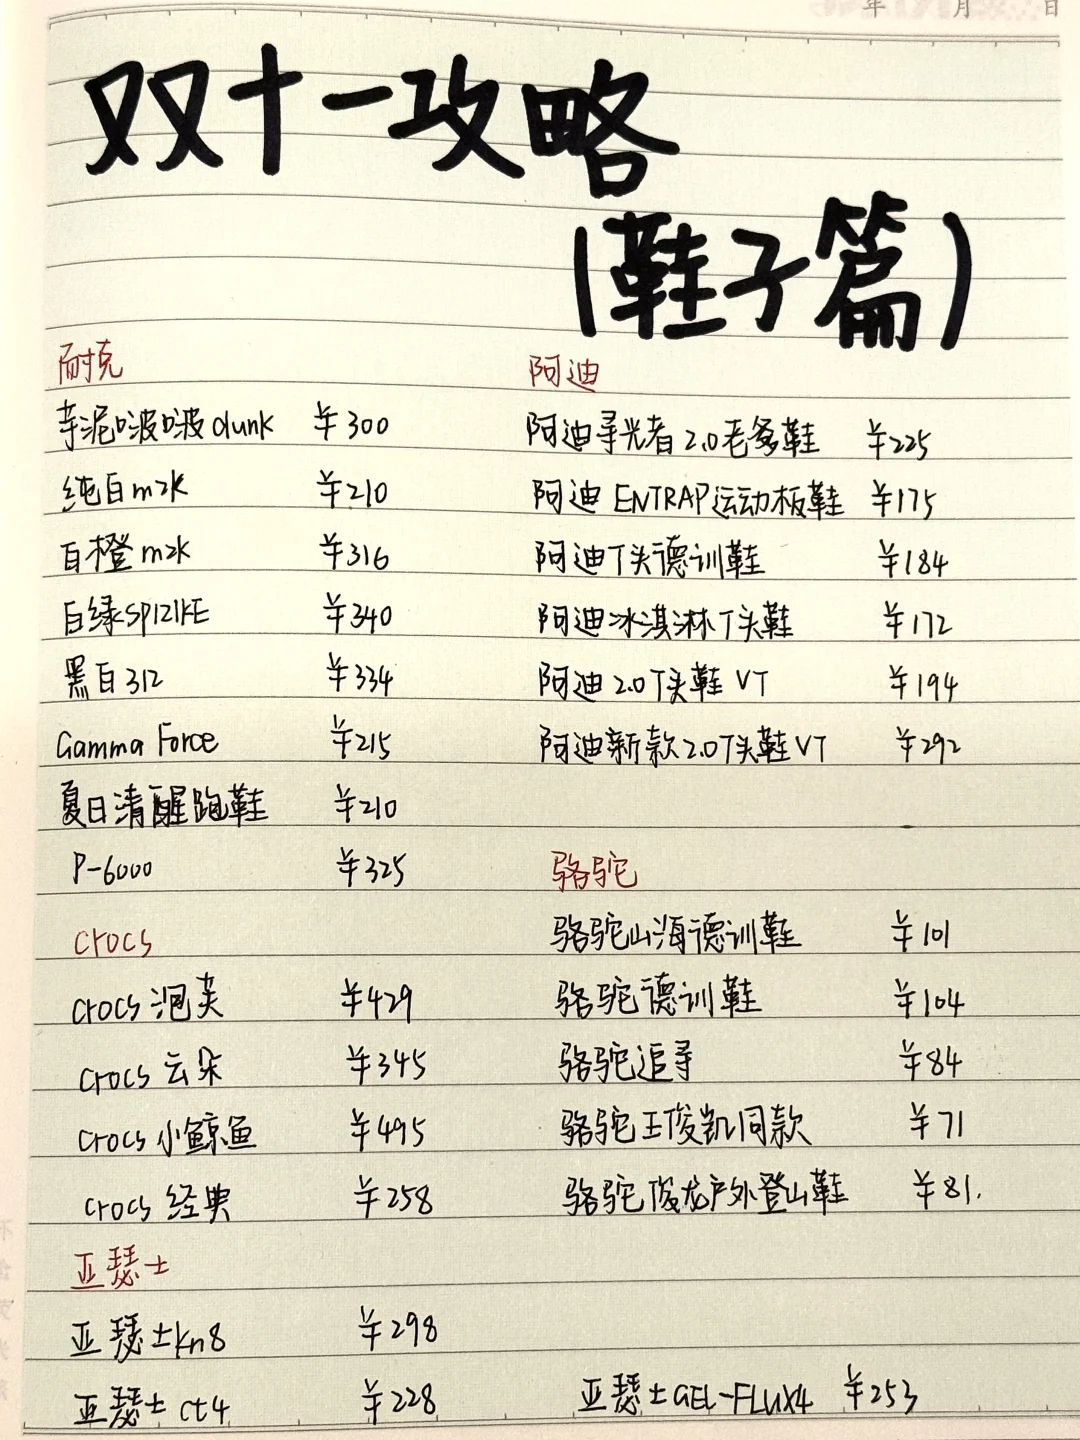 年 月 日
双十一攻略
(鞋子篇)
耐克
芋泥啵啵dunk ￥300
纯白m2k ￥210
白橙m2k ￥316
白绿SP121KE ￥340
黑白312 ￥334
Gamma Force ￥215
夏日清醒跑鞋 ￥210
P-6000 ￥325
crocs
crocs 泡芙 ￥429
crocs 云朵 ￥345
crocs 小鲸鱼 ￥495
crocs 经典 ￥258
亚瑟士
亚瑟士kn8 ￥298
亚瑟士 ct4 ￥228
阿迪
阿迪寻光者 2.0老爹鞋 ￥225
阿迪 ENTRAP运动板鞋 ￥175
阿迪T头德训鞋 ￥184
阿迪冰淇淋T头鞋 ￥172
阿迪 2.0T头鞋 VT ￥194
阿迪新款2.0T头鞋VT ￥292
骆驼
骆驼山海德训鞋 ￥101
骆驼德训鞋 ￥104
骆驼追寻 ￥84
骆驼王俊凯同款 ￥71
骆驼俊龙户外登山鞋 ￥81.
亚瑟士GEL-FLUX4 ￥253